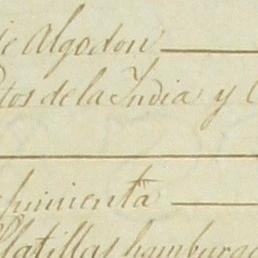 de Algodon
tos de la India y
pimienta
Platillas hamburg